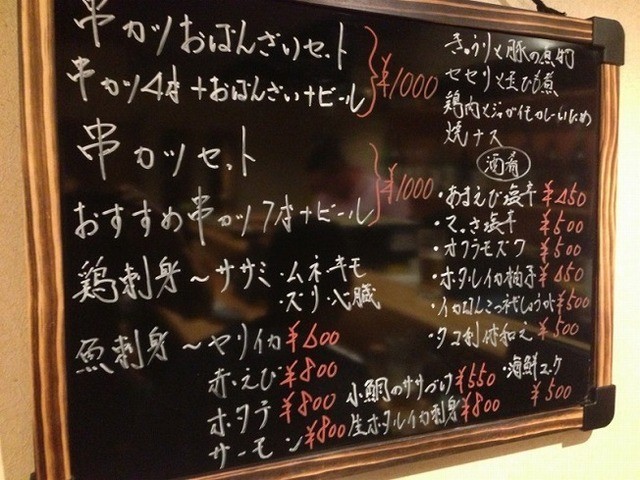 串カツおばんざいセット
串カツ4本+おばんざい+ビール
¥1000
串カツセット
おすすめ串カツ7本+ビール
¥1000
鶏刺身〜ササミ・ムネ・キモ
・ズリ・心臓
魚刺身〜ヤリイカ ¥600
赤えび ¥800
ホタテ ¥800
サーモン ¥800
小鯛のササづけ ¥550
生ホタルイカ刺身 ¥800
きゅうりと豚の煮物
セセリと
煮
鶏肉とジャガイモカレーいため
焼ナス
酒肴
・あまえび塩辛 ¥450
塩辛 ¥500
・オクラモズク ¥500
・ホタルイカ柚子 ¥450
¥500
・タコ
和え ¥500
・海鮮ユッケ
¥500